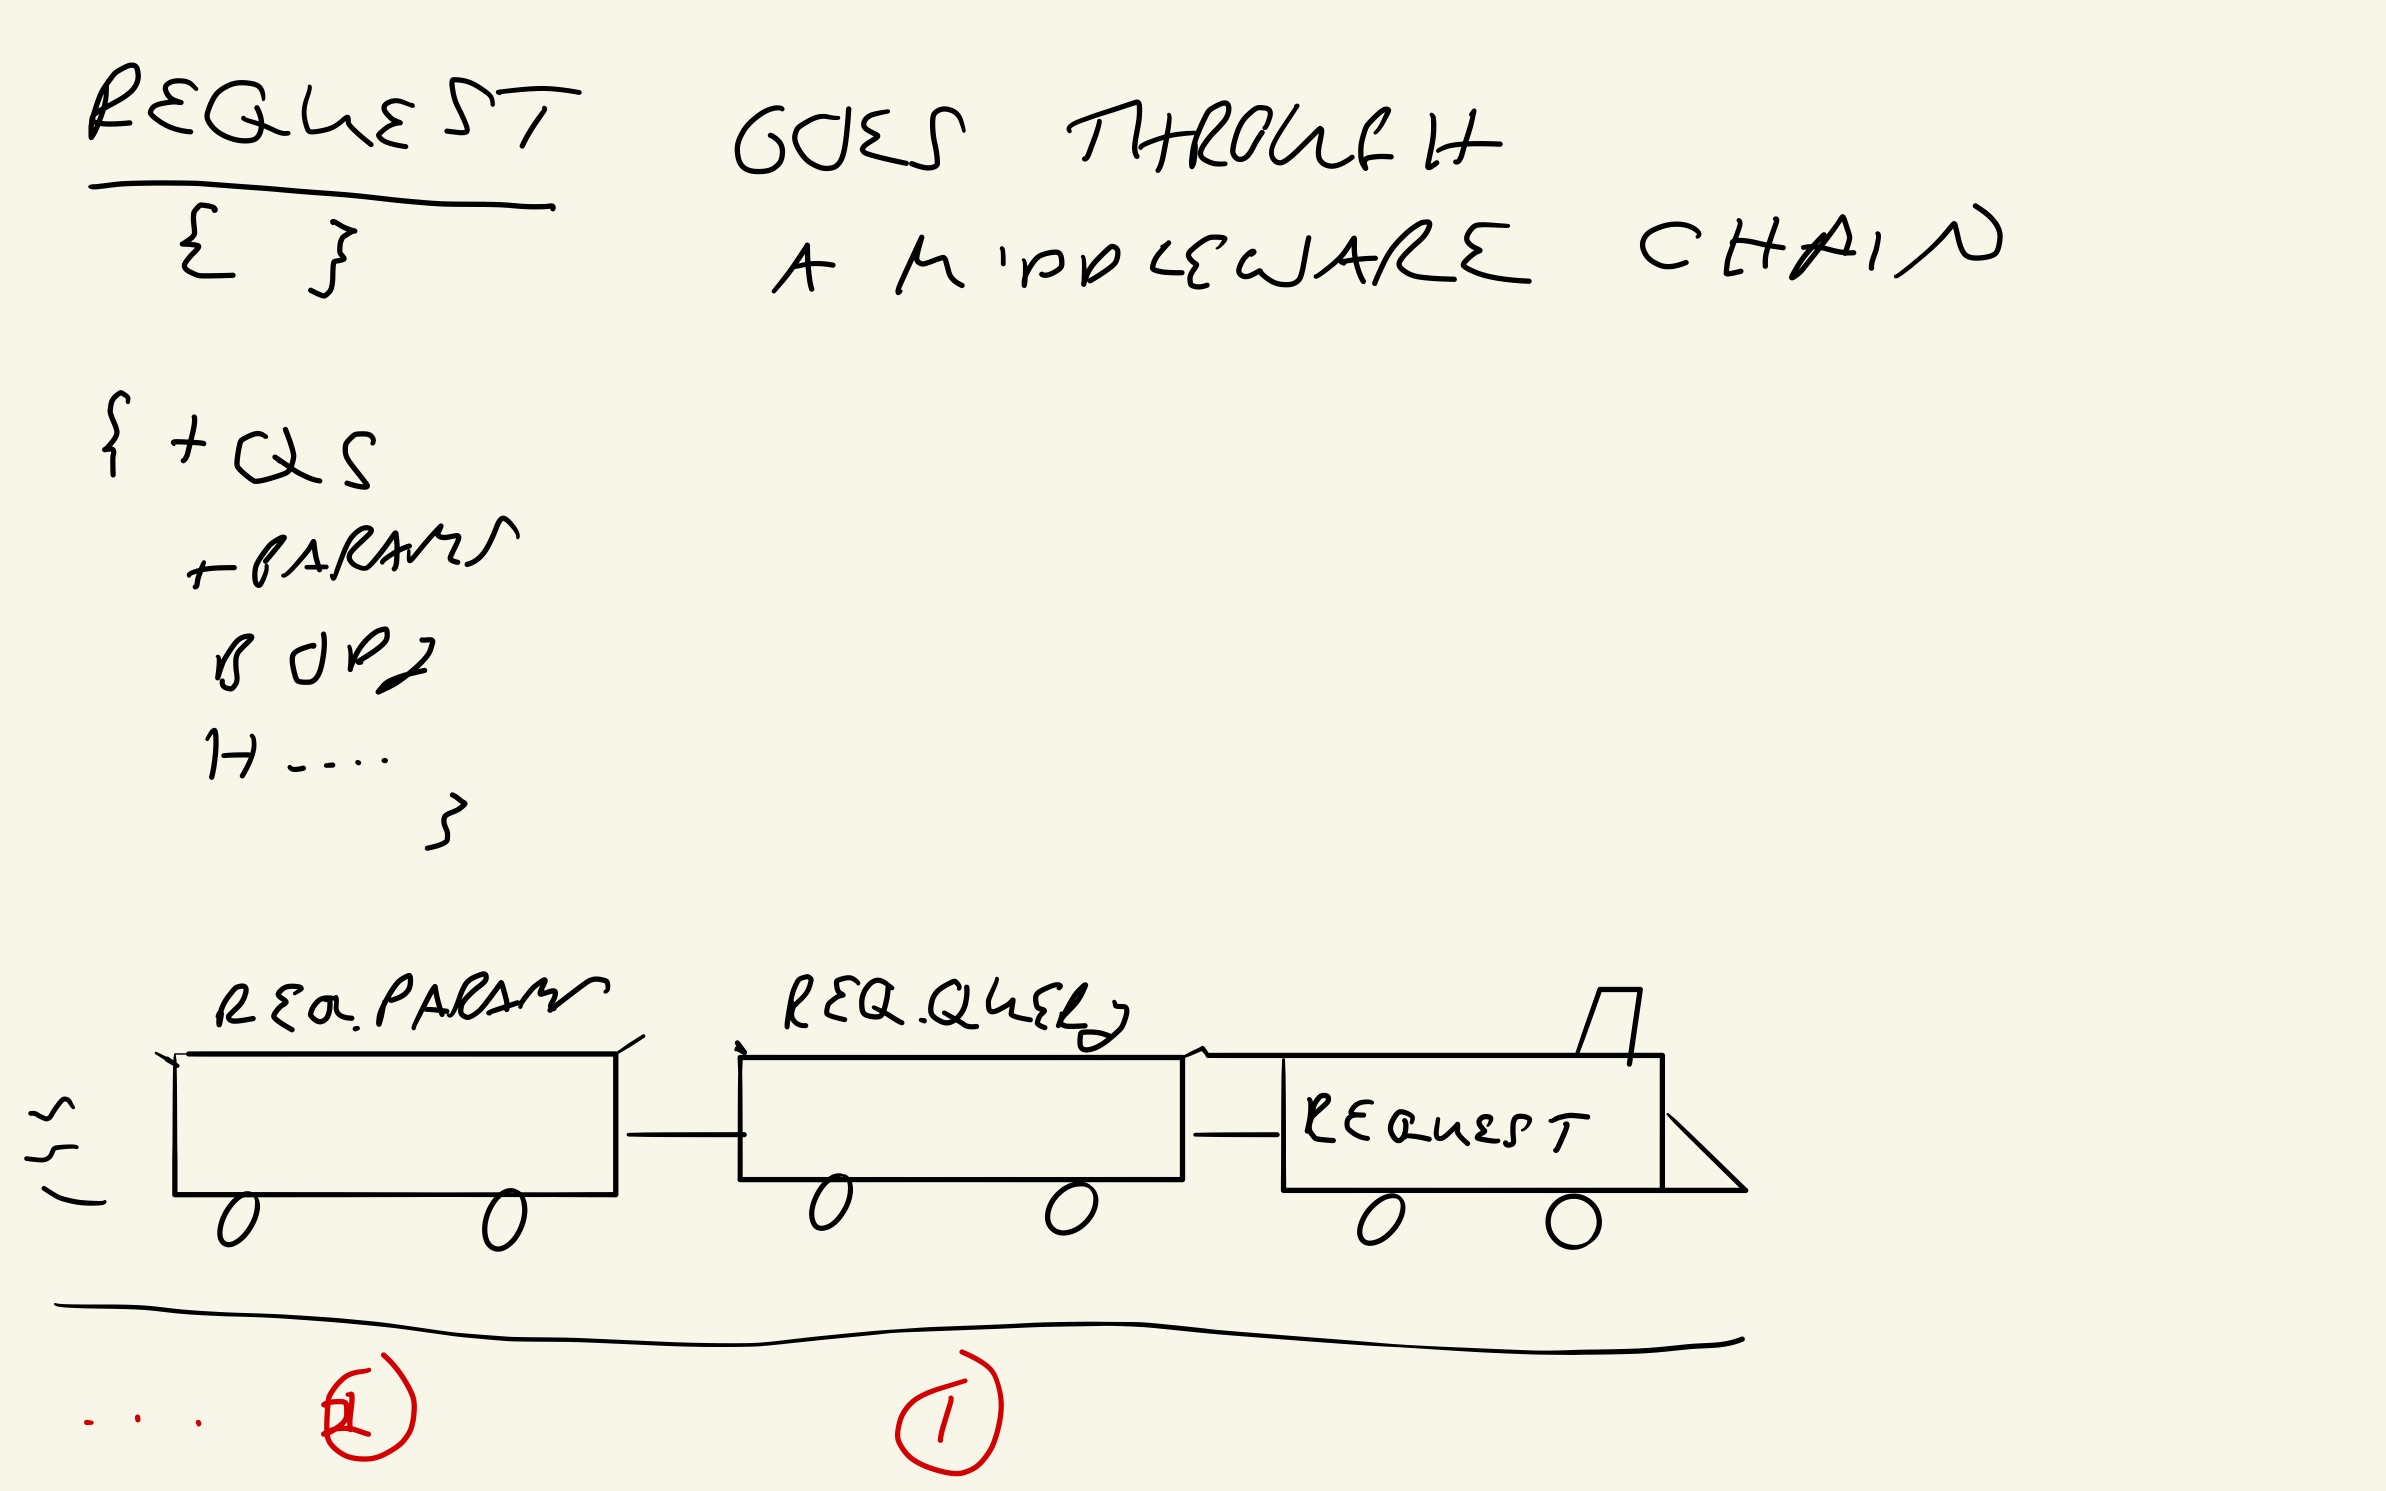 REQUEST GOES THROUGH
{ } A MIDDLEWARE CHAIN
{ + QS
+ PARAMS
BODY
H ....
}
REQ.PARAMS REQ.QUERY
REQUEST
... 2 1